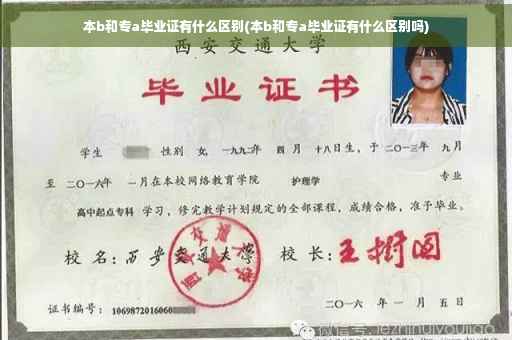 本b和专a毕业证有什么区别(本b和专a毕业证有什么区别吗)
西安交通大学
毕业证书
学生 性别 女, 一九九二年 四月 十八日生, 于二〇一三年 九月
至 二〇一六年 一月在本校网络教育学院 护理学 专业
高中起点专科 学习, 修完教学计划规定的全部课程, 成绩合格, 准予毕业。
校名: 西安交通大学 校长: 王树国
西安交通大学
证书编号: 1069872016060 二〇一六年 一月 五日
微信号: jezhihuiyoujiao